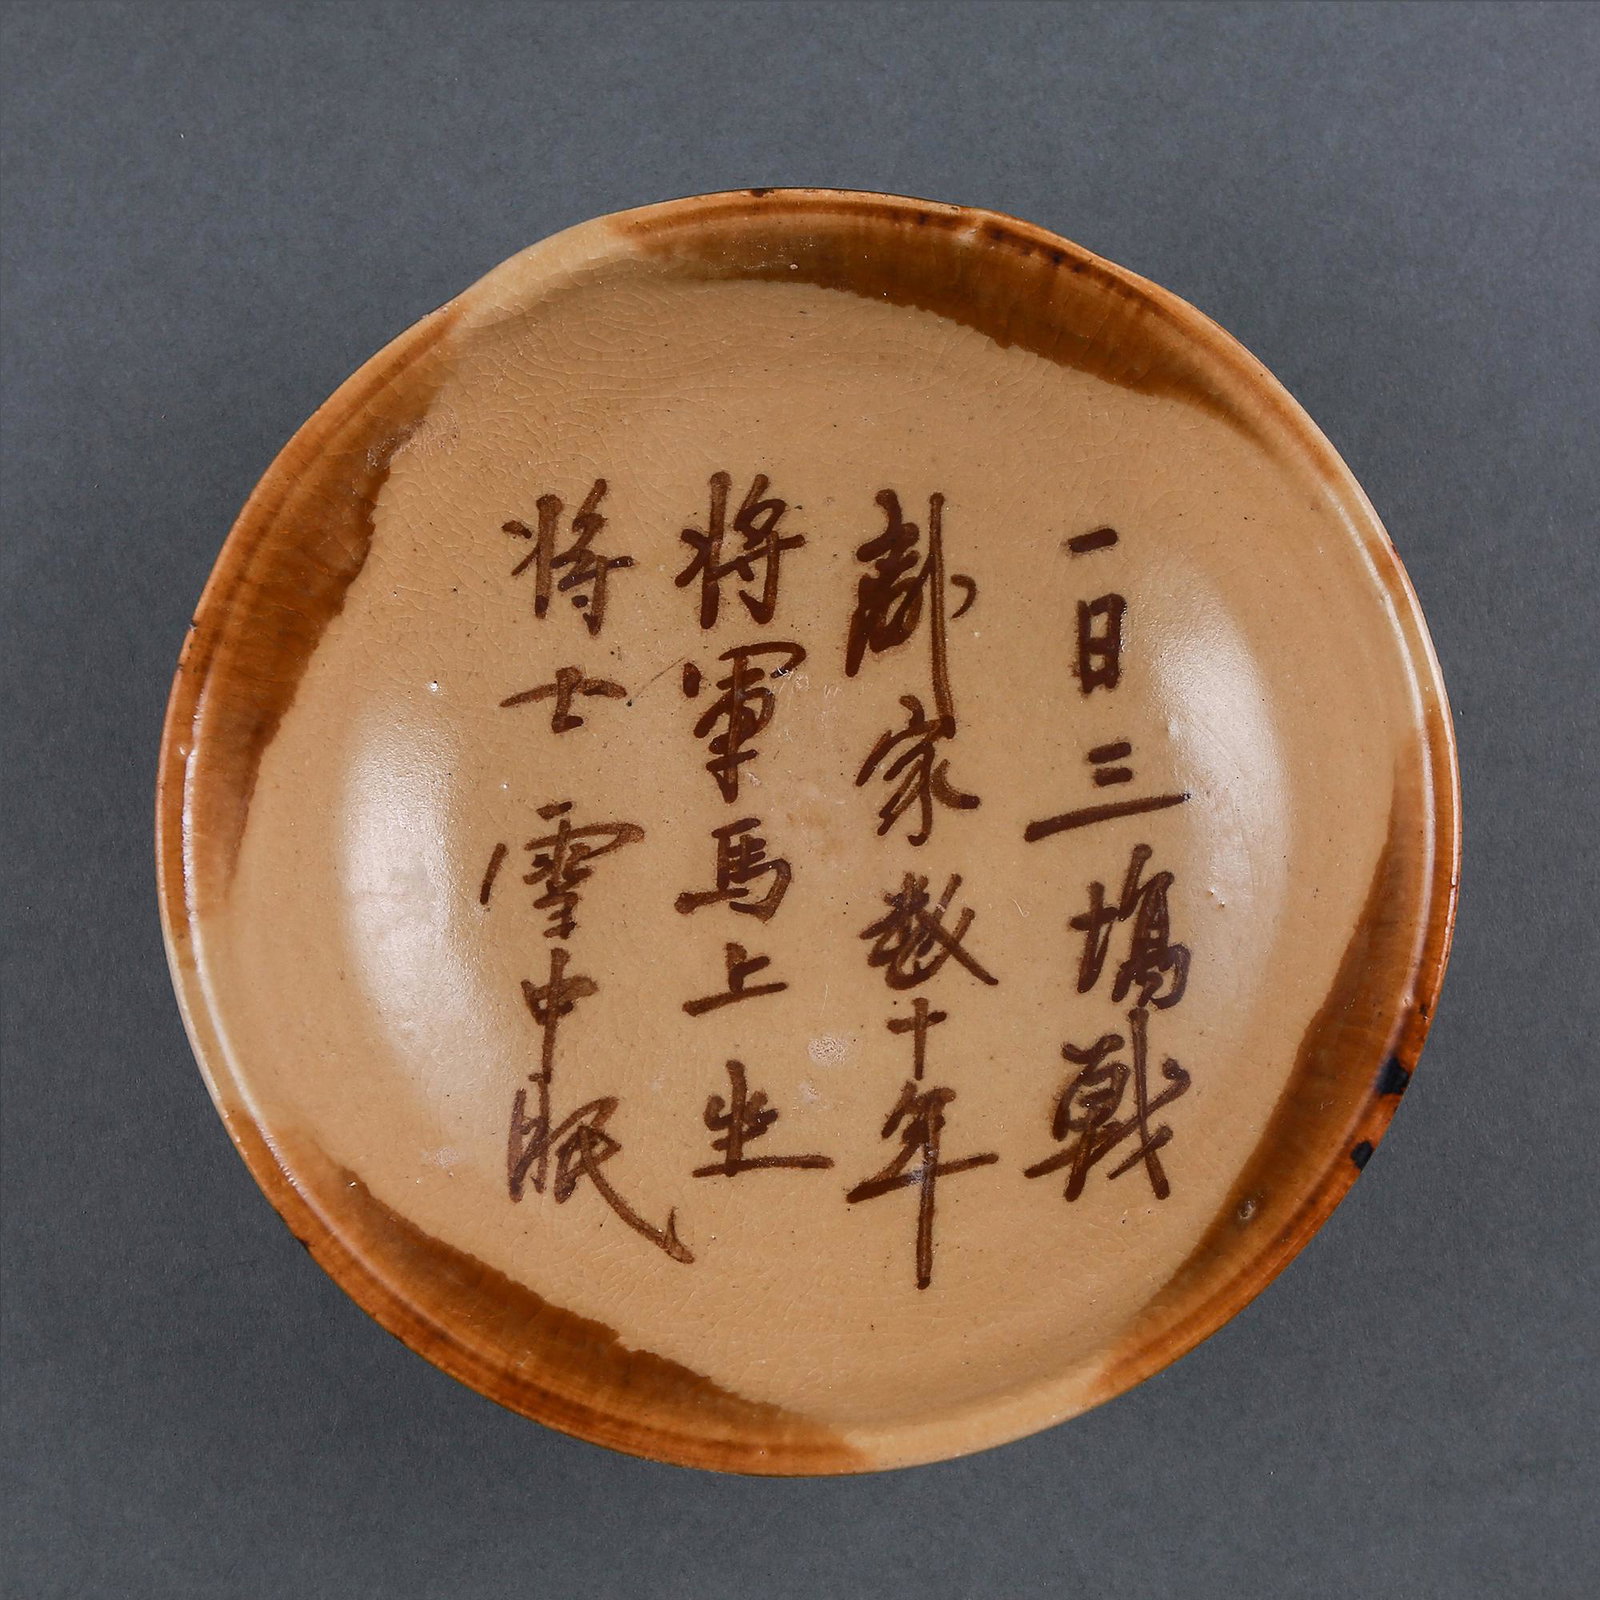 一日三塲戰
離家數十年
将軍馬上坐
将士雪中眠